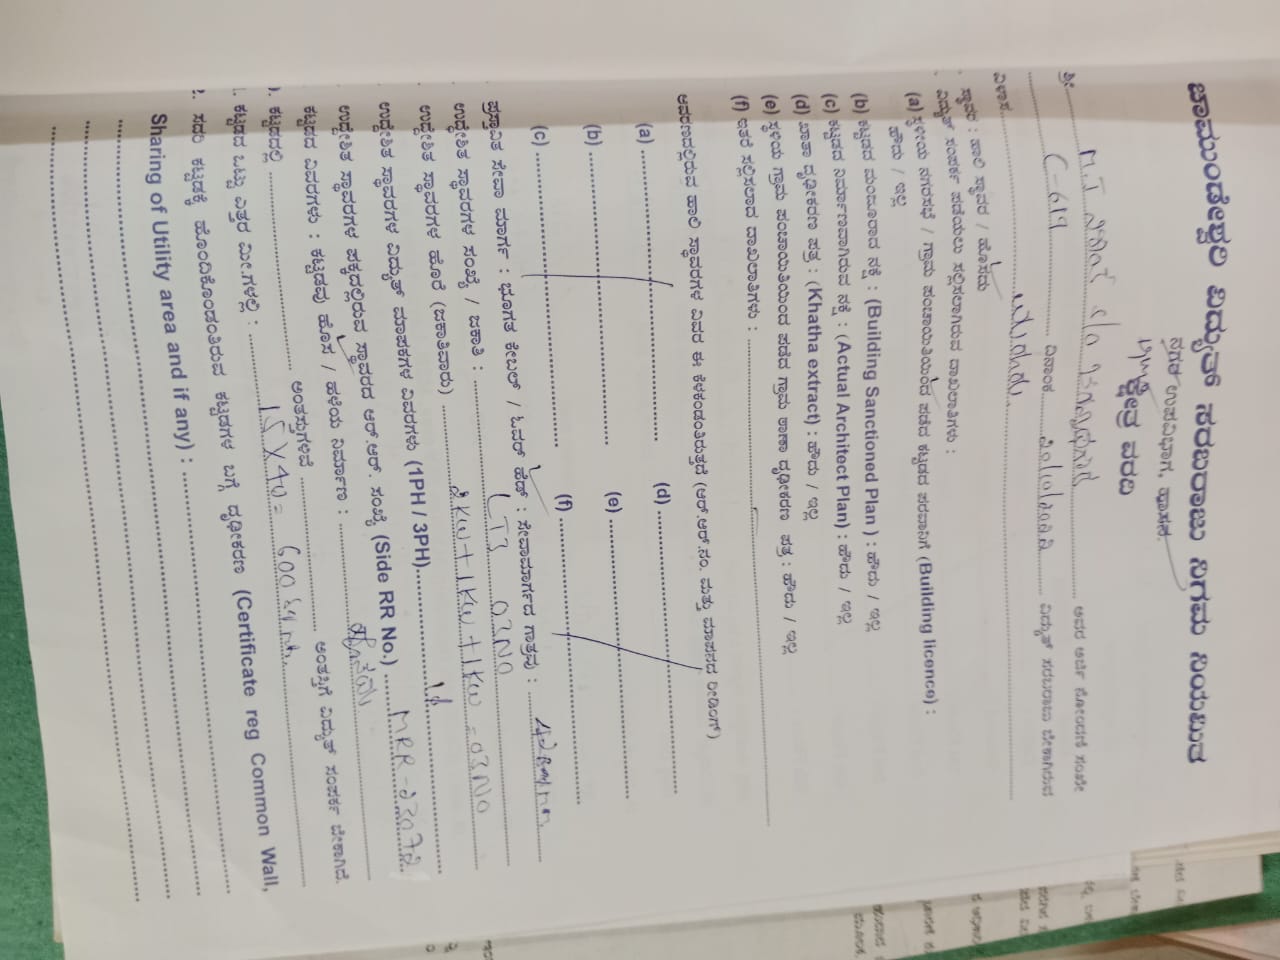 ಚಾಮುಂಡೇಶ್ವರಿ ವಿದ್ಯುತ್ ಸರಬರಾಜು ನಿಗಮ ನಿಯಮಿತ
ನಗರ ಉಪವಿಭಾಗ, ಹಾಸನ.
ಕ್ಷೇತ್ರ ವರದಿ
ಶ್ರೀ M.J c/o ಅವರ ಅರ್ಜಿ ನೋಂದಣಿ ಸಂಖ್ಯೆ
C-619 ದಿನಾಂಕ ವಿದ್ಯುತ್ ಸರಬರಾಜು ಬೇಕಾಗಿರುವ
ವಿಳಾಸ
ಸ್ಥಾವರ : ಹಾಲಿ ಸ್ಥಾವರ / ಹೊಸದು
ವಿದ್ಯುತ್ ಸಂಪರ್ಕ ಪಡೆಯಲು ಸಲ್ಲಿಸಲಾಗಿರುವ ದಾಖಲಾತಿಗಳು :
(a) ಸ್ಥಳೀಯ ನಗರಸಭೆ / ಗ್ರಾಮ ಪಂಚಾಯಿತಿಯಿಂದ ಪಡೆದ ಕಟ್ಟಡದ ಪರವಾನಿಗೆ (Building licence) :
ಹೌದು / ಇಲ್ಲ
(b) ಕಟ್ಟಡದ ಮಂಜೂರಾದ ನಕ್ಷೆ : (Building Sanctioned Plan ) : ಹೌದು / ಇಲ್ಲ
(c) ಕಟ್ಟಡದ ನಿರ್ಮಾಣವಾಗಿರುವ ನಕ್ಷೆ : (Actual Architect Plan) : ಹೌದು / ಇಲ್ಲ
(d) ಖಾತಾ ದೃಢೀಕರಣ ಪತ್ರ : (Khatha extract) : ಹೌದು / ಇಲ್ಲ
(e) ಸ್ಥಳಿಯ ಗ್ರಾಮ ಪಂಚಾಯಿತಿಯಿಂದ ಪಡೆದ ಗ್ರಾಮ ಠಾಣಾ ದೃಢೀಕರಣ ಪತ್ರ : ಹೌದು / ಇಲ್ಲ
(f) ಇತರೆ ಸಲ್ಲಿಸಲಾದ ದಾಖಲಾತಿಗಳು :
ಆವರಣದಲ್ಲಿರುವ ಹಾಲಿ ಸ್ಥಾವರಗಳ ವಿವರ ಈ ಕೆಳಕಂಡಂತಿರುತ್ತದೆ (ಆರ್.ಆರ್.ನಂ. ಮತ್ತು ಮಾಪನದ ರೀಡಿಂಗ್)
(a) (d)
(b) (e)
(c) (f)
ಪ್ರಸ್ತಾವಿತ ಸೇವಾ ಮಾರ್ಗ : ಭೂಗತ ಕೇಬಲ್ / ಓವರ್ ಹೆಡ್ : ಸೇವಾಮಾರ್ಗದ ಗಾತ್ರವು :
ಉದ್ದೇಶಿತ ಸ್ಥಾವರಗಳ ಸಂಖ್ಯೆ / ಜಕಾತಿ : LT3 03NO
ಉದ್ದೇಶಿತ ಸ್ಥಾವರಗಳ ಹೊರೆ (ಜಕಾತಿವಾರು) 2KW+1KW+1KW = 03NO
ಉದ್ದೇಶಿತ ಸ್ಥಾವರಗಳ ವಿದ್ಯುತ್ ಮಾಪಕಗಳ ವಿವರಗಳು (1PH / 3PH)
ಉದ್ದೇಶಿತ ಸ್ಥಾವರಗಳ ಪಕ್ಕದಲ್ಲಿರುವ ಸ್ಥಾವರದ ಆರ್.ಆರ್. ಸಂಖ್ಯೆ (Side RR No.)
ಕಟ್ಟಡದ ವಿವರಗಳು : ಕಟ್ಟಡವು ಹೊಸ / ಹಳೆಯ ನಿರ್ಮಾಣ :
ಕಟ್ಟಡದಲ್ಲಿ ಅಂತಸ್ತುಗಳಿವೆ ಅಂತಸ್ತಿಗೆ ವಿದ್ಯುತ್ ಸಂಪರ್ಕ ಬೇಕಾಗಿದೆ.
ಕಟ್ಟಡದ ಒಟ್ಟು ಎತ್ತರ ಮೀ.ಗಳಲ್ಲಿ : 15X40= 600
2. ಸದರಿ ಕಟ್ಟಡಕ್ಕೆ ಹೊಂದಿಕೊಂಡಂತಿರುವ ಕಟ್ಟಡಗಳ ಬಗ್ಗೆ ದೃಢೀಕರಣ (Certificate reg Common Wall,
Sharing of Utility area and if any) :